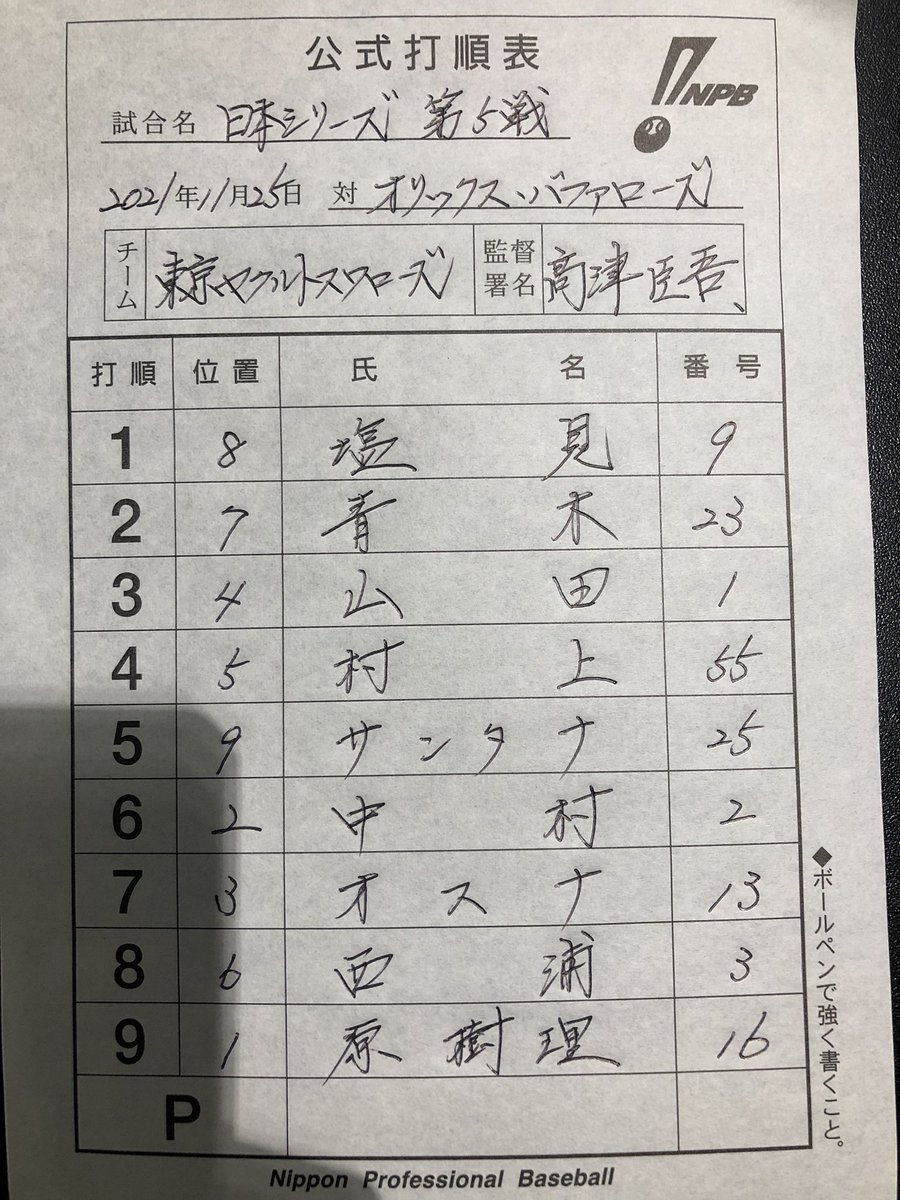 公式打順表
NPB
試合名 日本シリーズ 第5戦
2021年11月25日 対 オリックス・バファローズ
チーム 東京ヤクルトスワローズ 監督署名 高津臣吾
打順 位置 氏名 番号
1 8 塩見 9
2 7 青木 23
3 4 山田 1
4 5 村上 55
5 9 サンタナ 25
6 2 中村 2
7 3 オスナ 13
8 6 西浦 3
9 1 原樹理 16
P
◆ボールペンで強く書くこと。
Nippon Professional Baseball